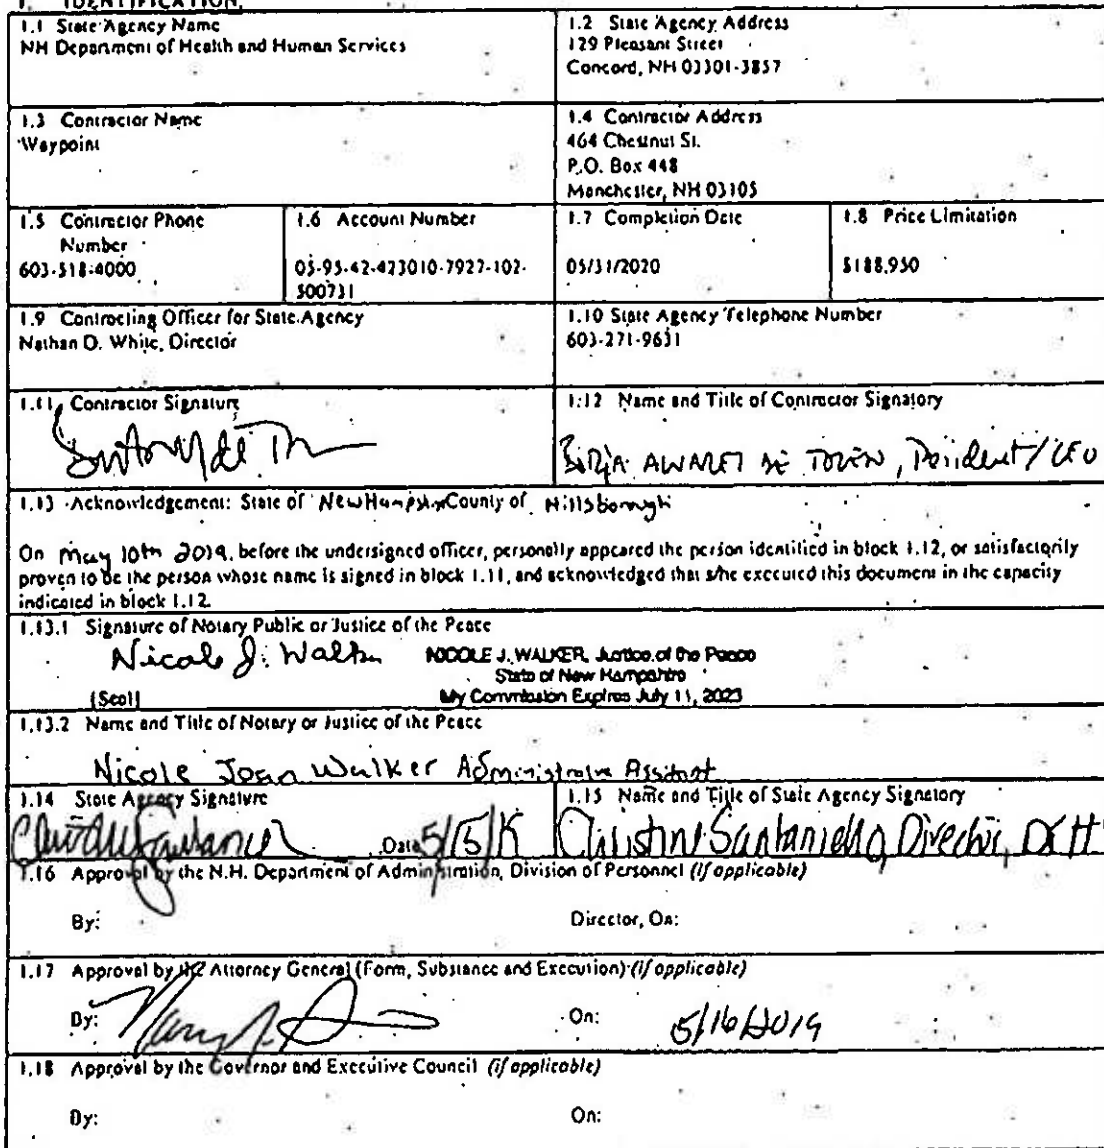 1. IDENTIFICATION.
1.1 State Agency Name
NH Department of Health and Human Services
1.2 State Agency Address
129 Pleasant Street
Concord, NH 03301-3857
1.3 Contractor Name
Waypoint
1.4 Contractor Address
464 Chestnut St.
P.O. Box 448
Manchester, NH 03105
1.5 Contractor Phone
Number
603-518-4000
1.6 Account Number
05-95-42-423010-7927-102-
500731
1.7 Completion Date
05/31/2020
1.8 Price Limitation
$188,950
1.9 Contracting Officer for State Agency
Nathan D. White, Director
1.10 State Agency Telephone Number
603-271-9631
1.11 Contractor Signature
1.12 Name and Title of Contractor Signatory
President/CEO
1.13 Acknowledgement: State of New Hampshire County of Hillsborough
On May 10th 2019, before the undersigned officer, personally appeared the person identified in block 1.12, or satisfactorily
proven to be the person whose name is signed in block 1.11, and acknowledged that s/he executed this document in the capacity
indicated in block 1.12.
1.13.1 Signature of Notary Public or Justice of the Peace
Nicole J. Walker NICOLE J. WALKER, Justice of the Peace
State of New Hampshire
[Seal] My Commission Expires July 11, 2023
1.13.2 Name and Title of Notary or Justice of the Peace
Nicole Joan Walker Administrative Assistant
1.14 State Agency Signature
Date 5/15/19
1.15 Name and Title of State Agency Signatory
Christine Santaniello, Director,
1.16 Approval by the N.H. Department of Administration, Division of Personnel (if applicable)
By: Director, On:
1.17 Approval by the Attorney General (Form, Substance and Execution) (if applicable)
By: On: 5/16/2019
1.18 Approval by the Governor and Executive Council (if applicable)
By: On: